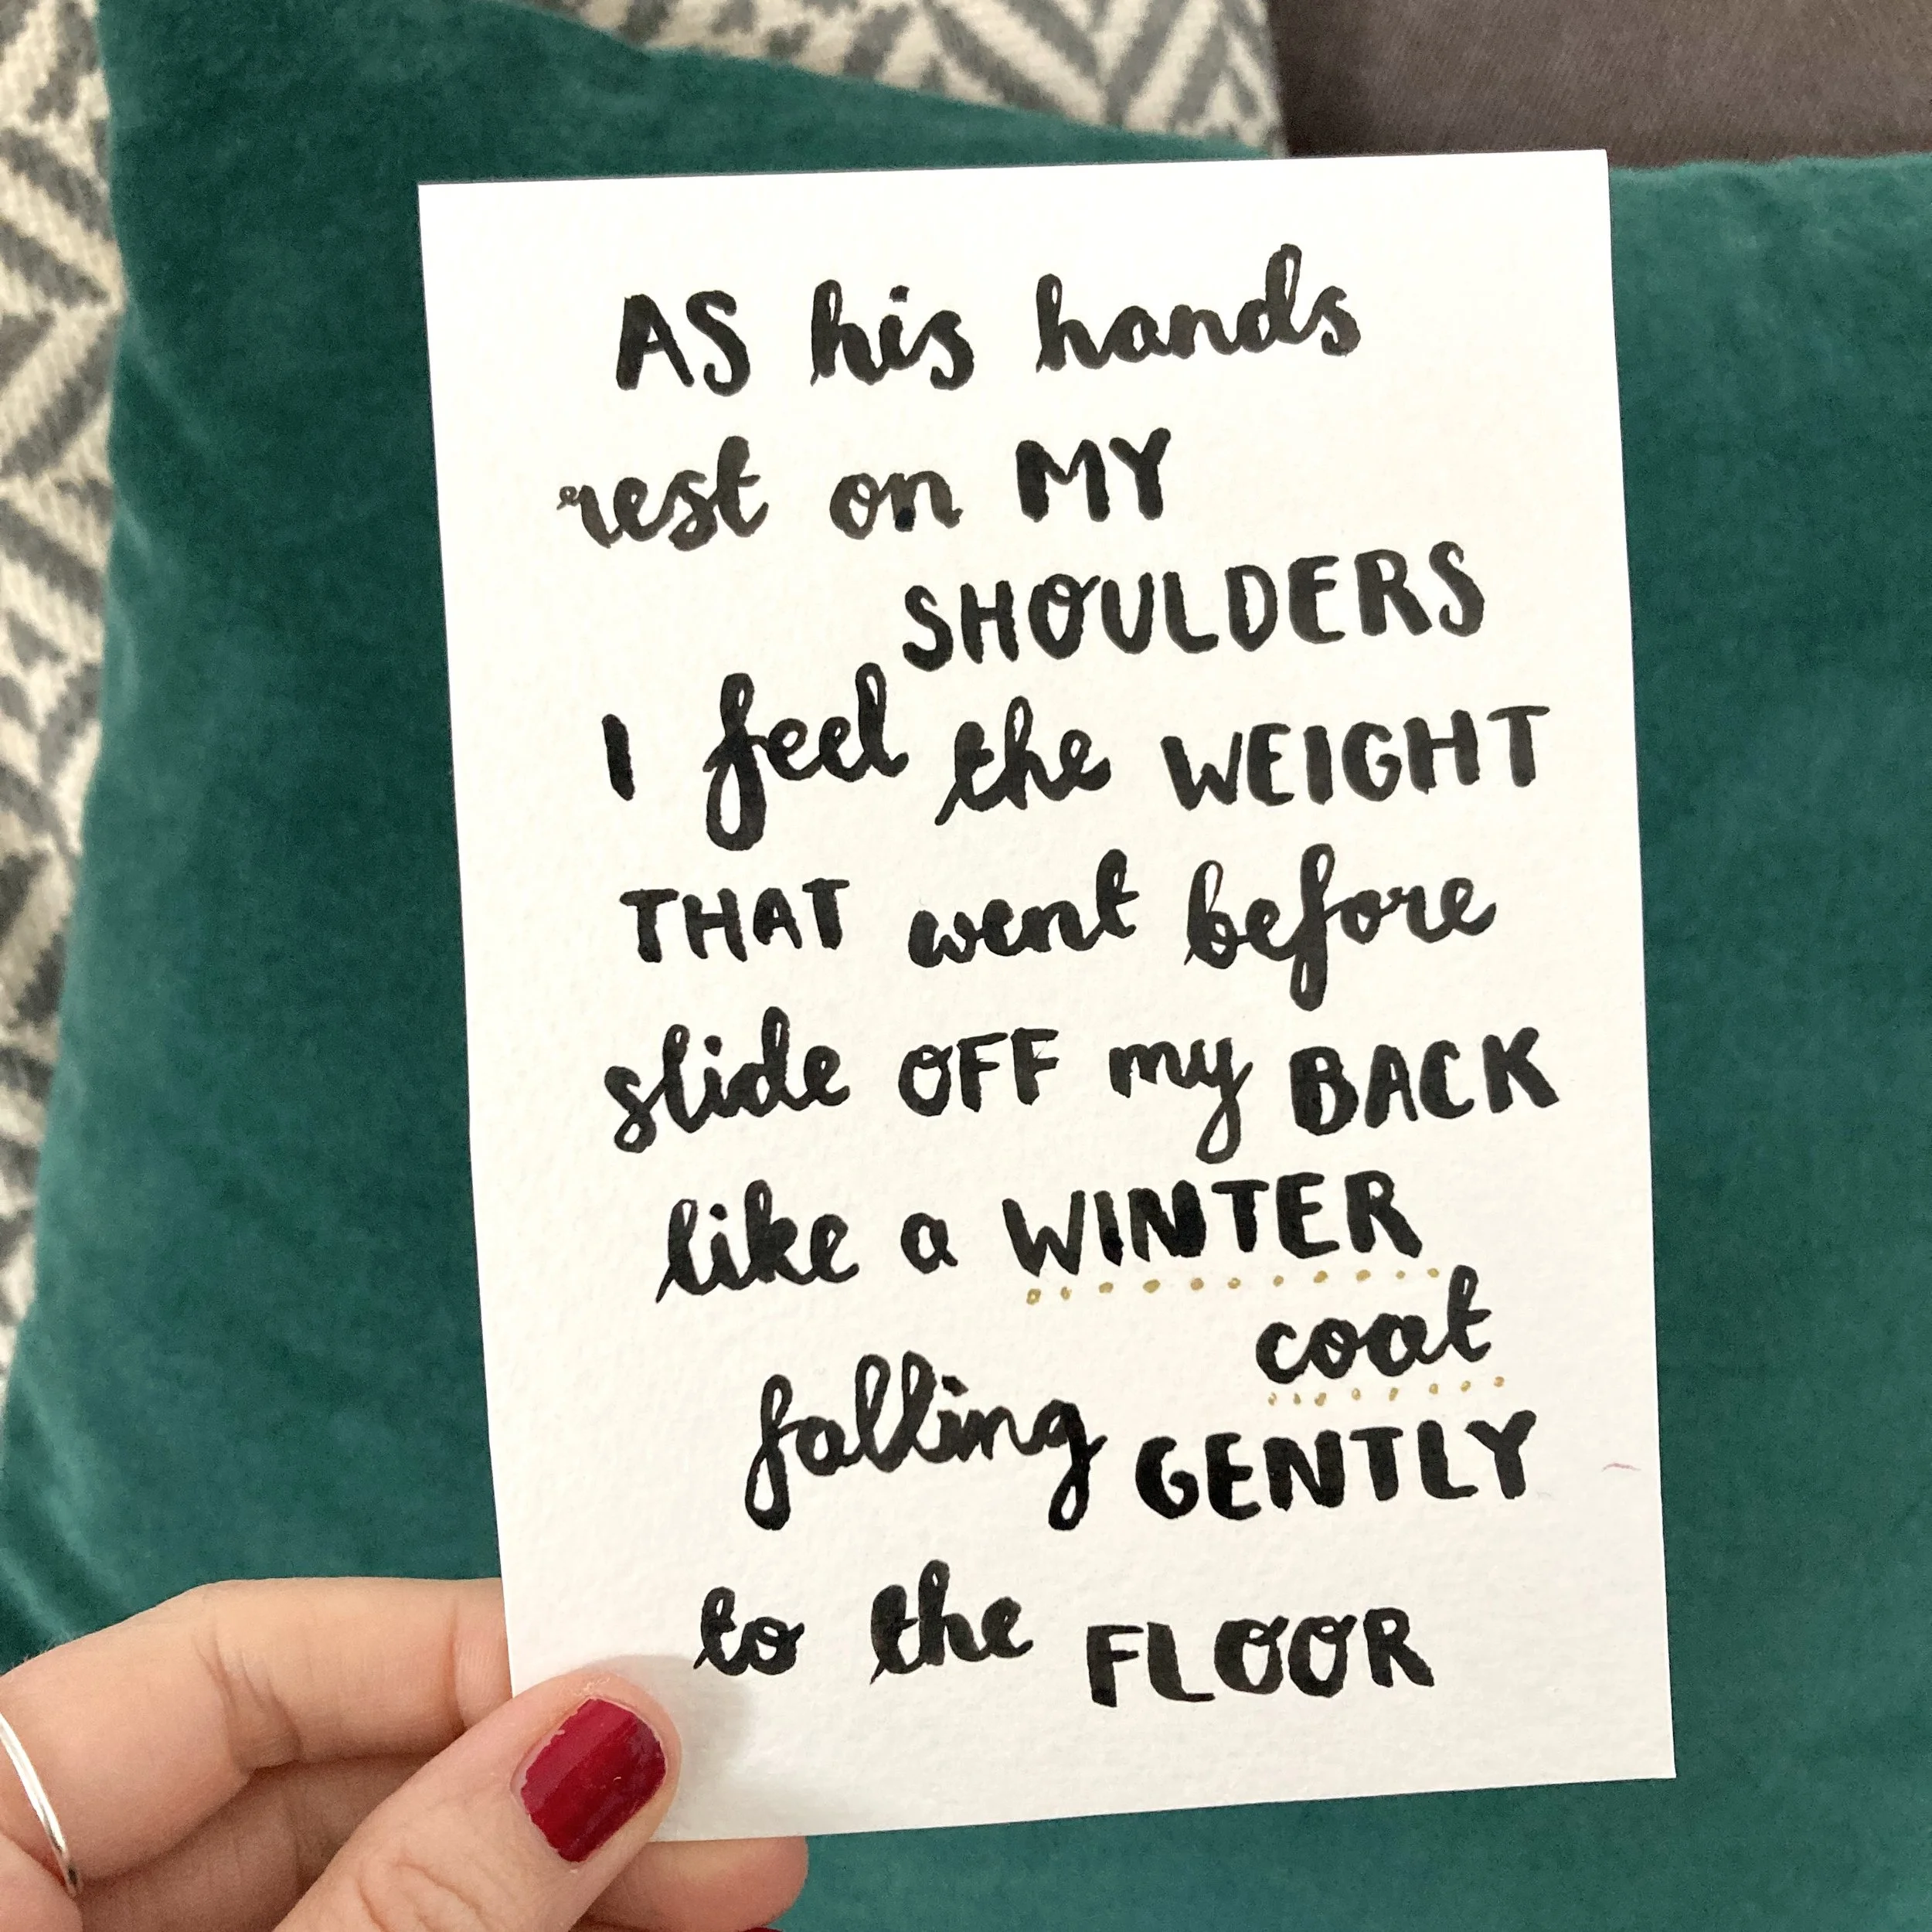 AS his hands
rest on MY
SHOULDERS
I feel the WEIGHT
THAT went before
slide OFF my BACK
like a WINTER
coat
falling GENTLY
to the FLOOR